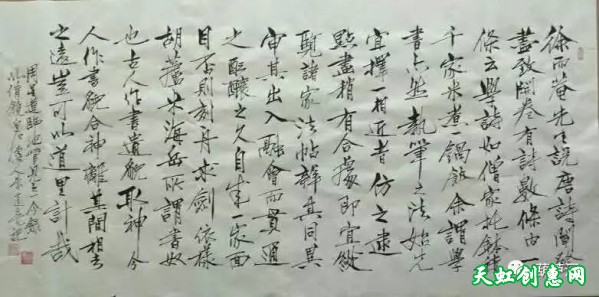 徐而菴先生說唐詩闡發
盡致開卷有詩數條內一
條云學詩如僧家托鉢積
千家米煮一鍋飯余謂學
書亦然執筆之法始先
宜擇一相近者仿之逮
點畫稍有合據即宜縱
覽諸家法帖辨其同異
審其出入融會而貫通
之醖釀之久自生一家面
目否則刻舟求劍依樣
胡蘆米海岳所謂書奴
也古人作書遺貌取神今
人作書貌合神離其間相去
之遠豈可以道里計哉
周星蓮臨池管見
天虹创意网